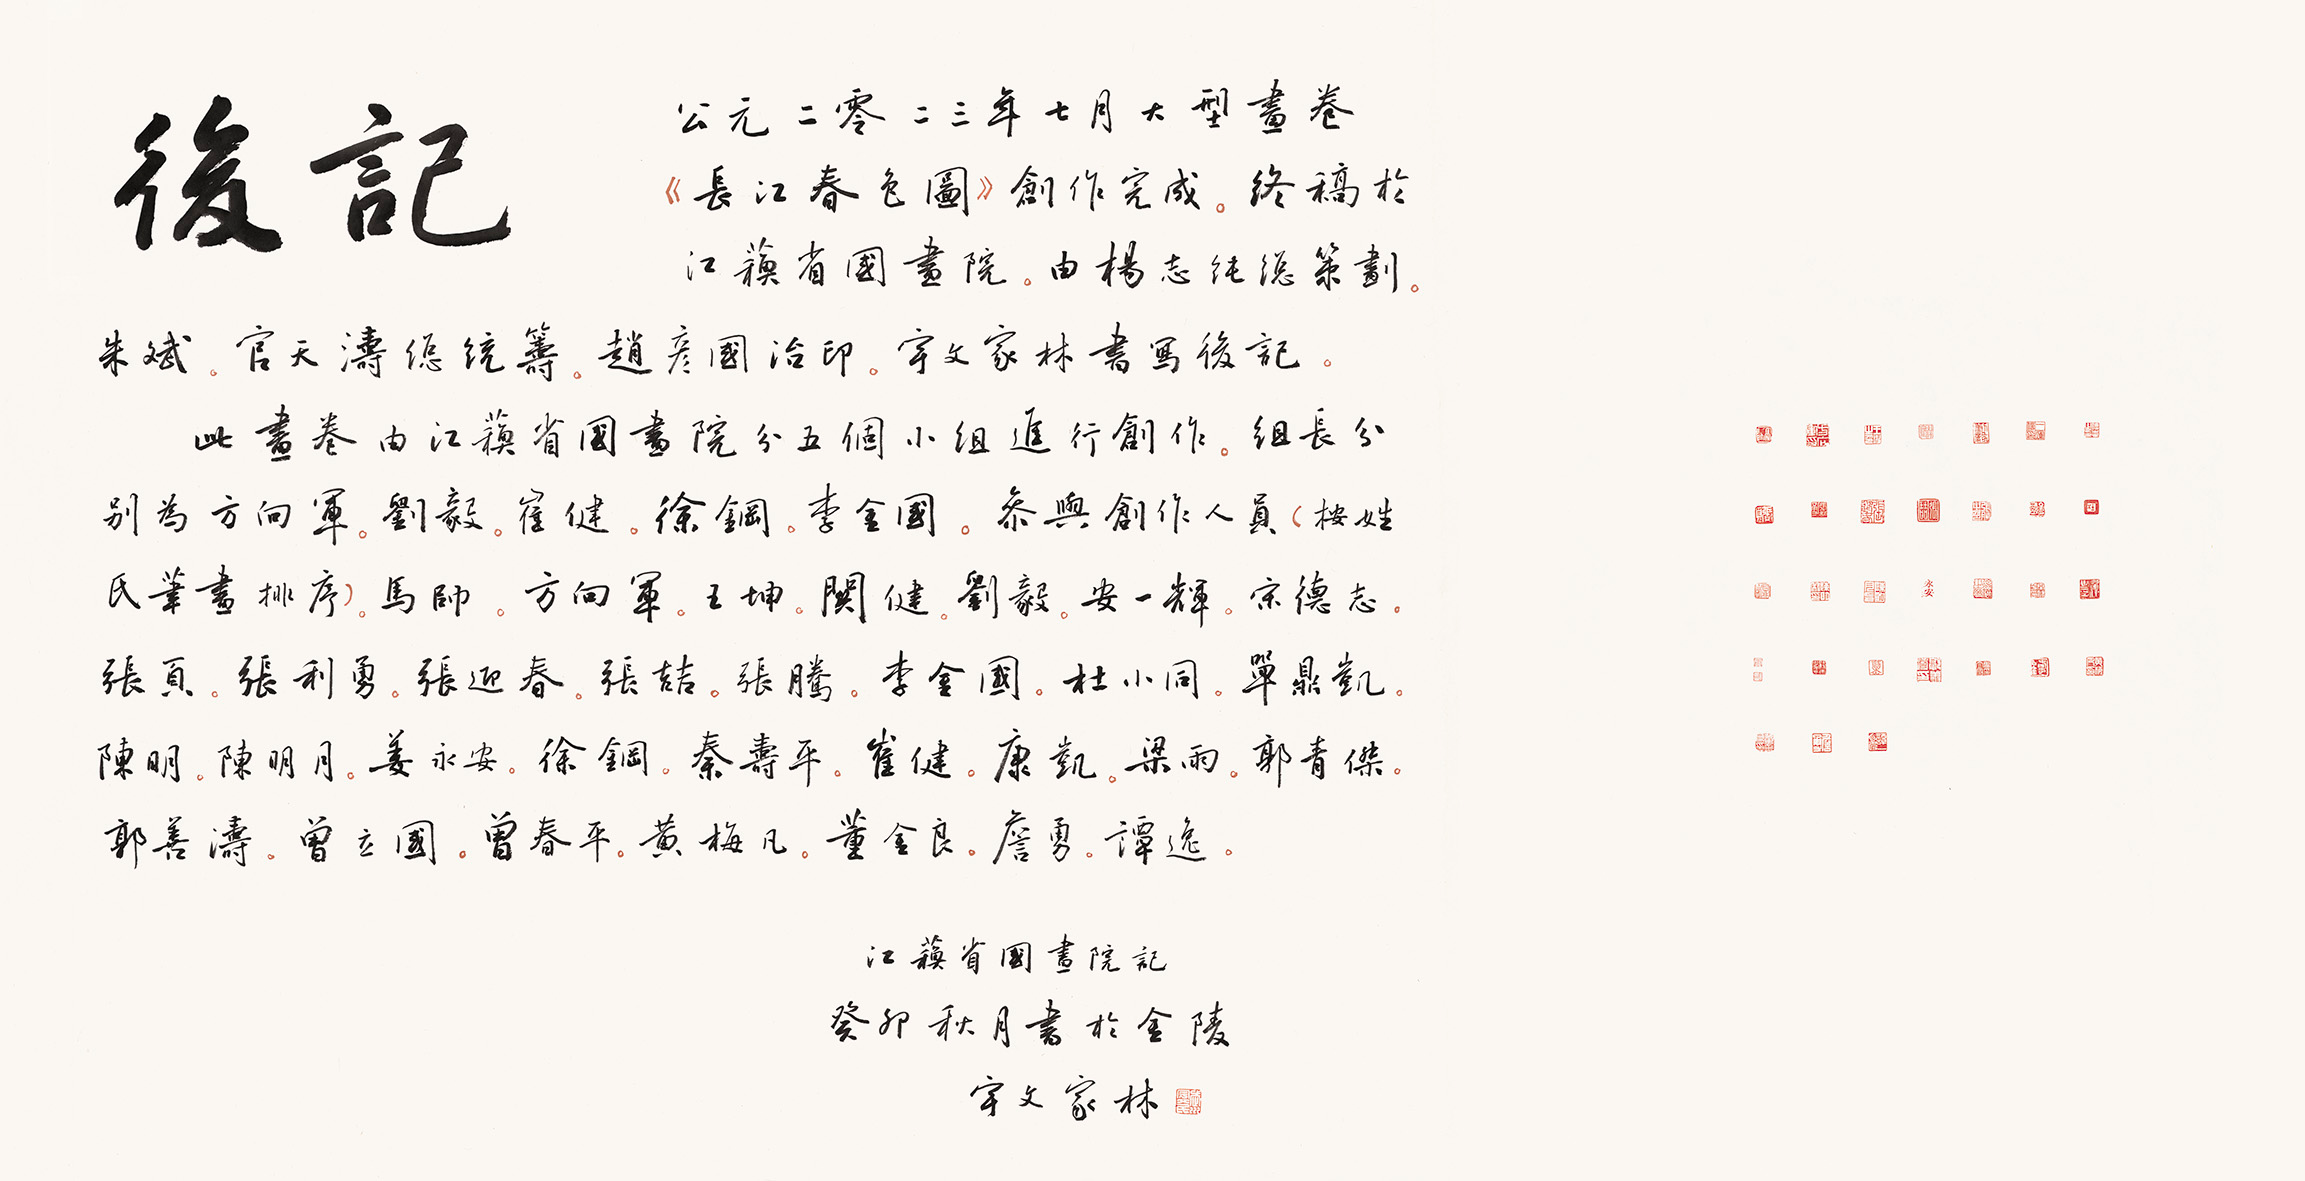 後記
公元二零二三年七月大型畫卷
《長江春色圖》創作完成。終稿於
江蘇省國畫院。由楊志純總策劃。
朱斌。官天濤總統籌。趙彥國治印。宇文家林書寫後記。
此畫卷由江蘇省國畫院分五個小組進行創作。組長分
別為方向軍。劉毅。崔健。徐鋼。李金國。參與創作人員(按姓
氏筆畫排序)。馬帥。方向軍。王坤。關健。劉毅。安一輝。宗德志。
張頁。張利勇。張迎春。張喆。張騰。李金國。杜小同。單鼎凱。
陳明。陳明月。姜永安。徐鋼。秦壽平。崔健。康凱。梁雨。郭青傑。
郭善濤。曾立國。曾春平。黃梅凡。董金良。詹勇。譚逸。
江蘇省國畫院記
癸卯秋月書於金陵
宇文家林
永安